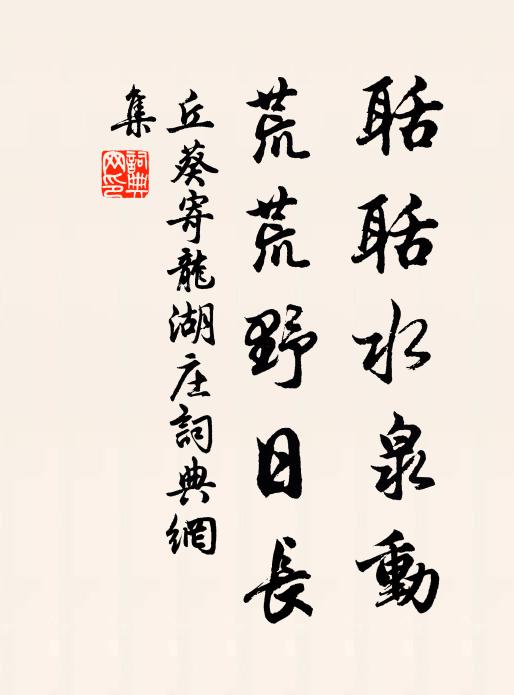 聒聒水泉動
荒荒野日長
丘葵寄龍湖庄詞典網
集
詞典網印